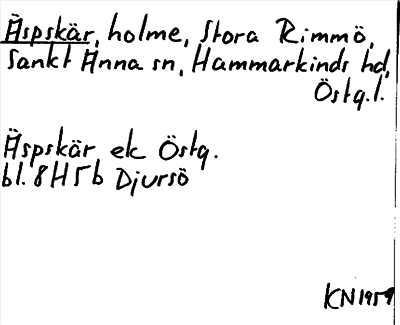 Äspskär, holme, Stora Rimmö,
Sankt Anna sn, Hammarkinds hd,
Östg.l.
Äspskär ek Östg.
bl. 8H5b Djursö
KN1959